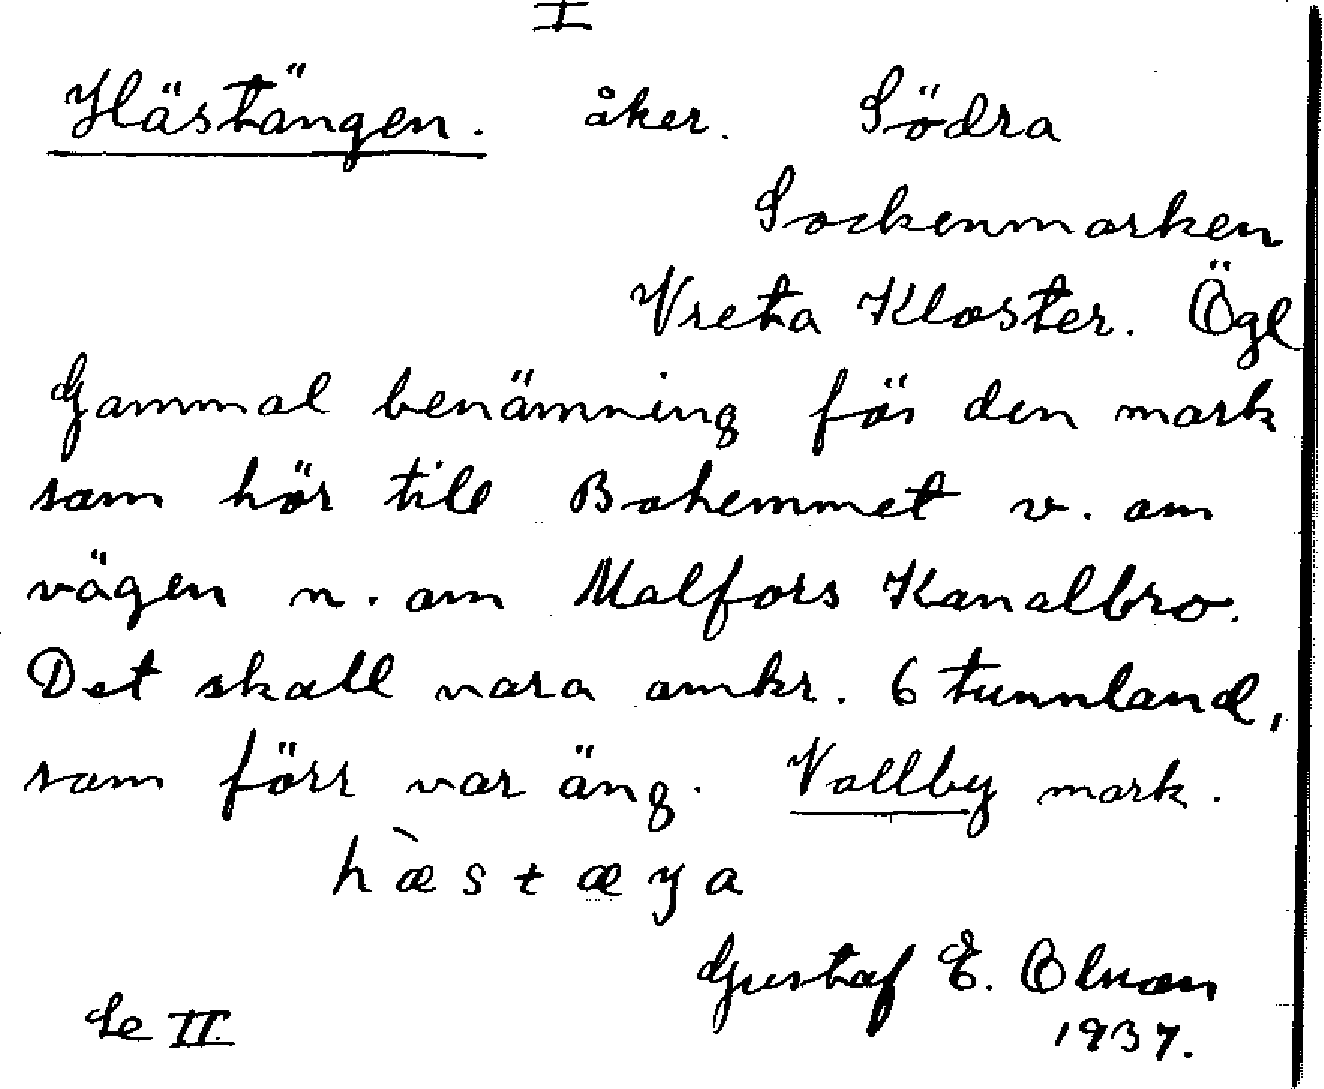 I
Hästängen. åker. Södra
Sockenmarken
Vreta Kloster. Ögl
Gammal benämning för den mark
som hör till Bohemmet v. om
vägen n. om Malfors Kanalbro.
Det skall vara omkr. 6 tunnland,
som förr var äng. Vallby mark.
hæ̀stæŋa
Gustaf E. Olsson
Se II. 1937.